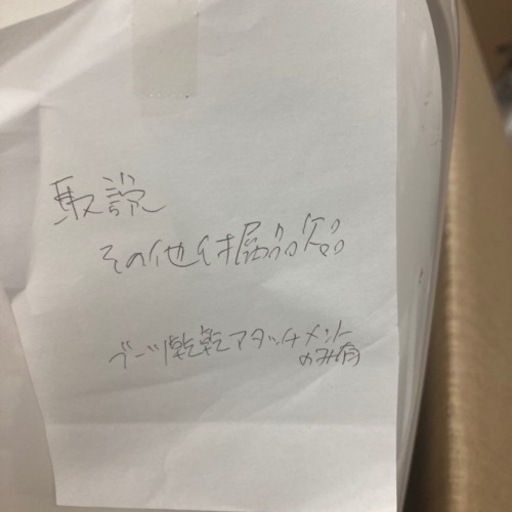 取説
その他付属品欠品
ブーツ乾燥アタッチメント
のみ有